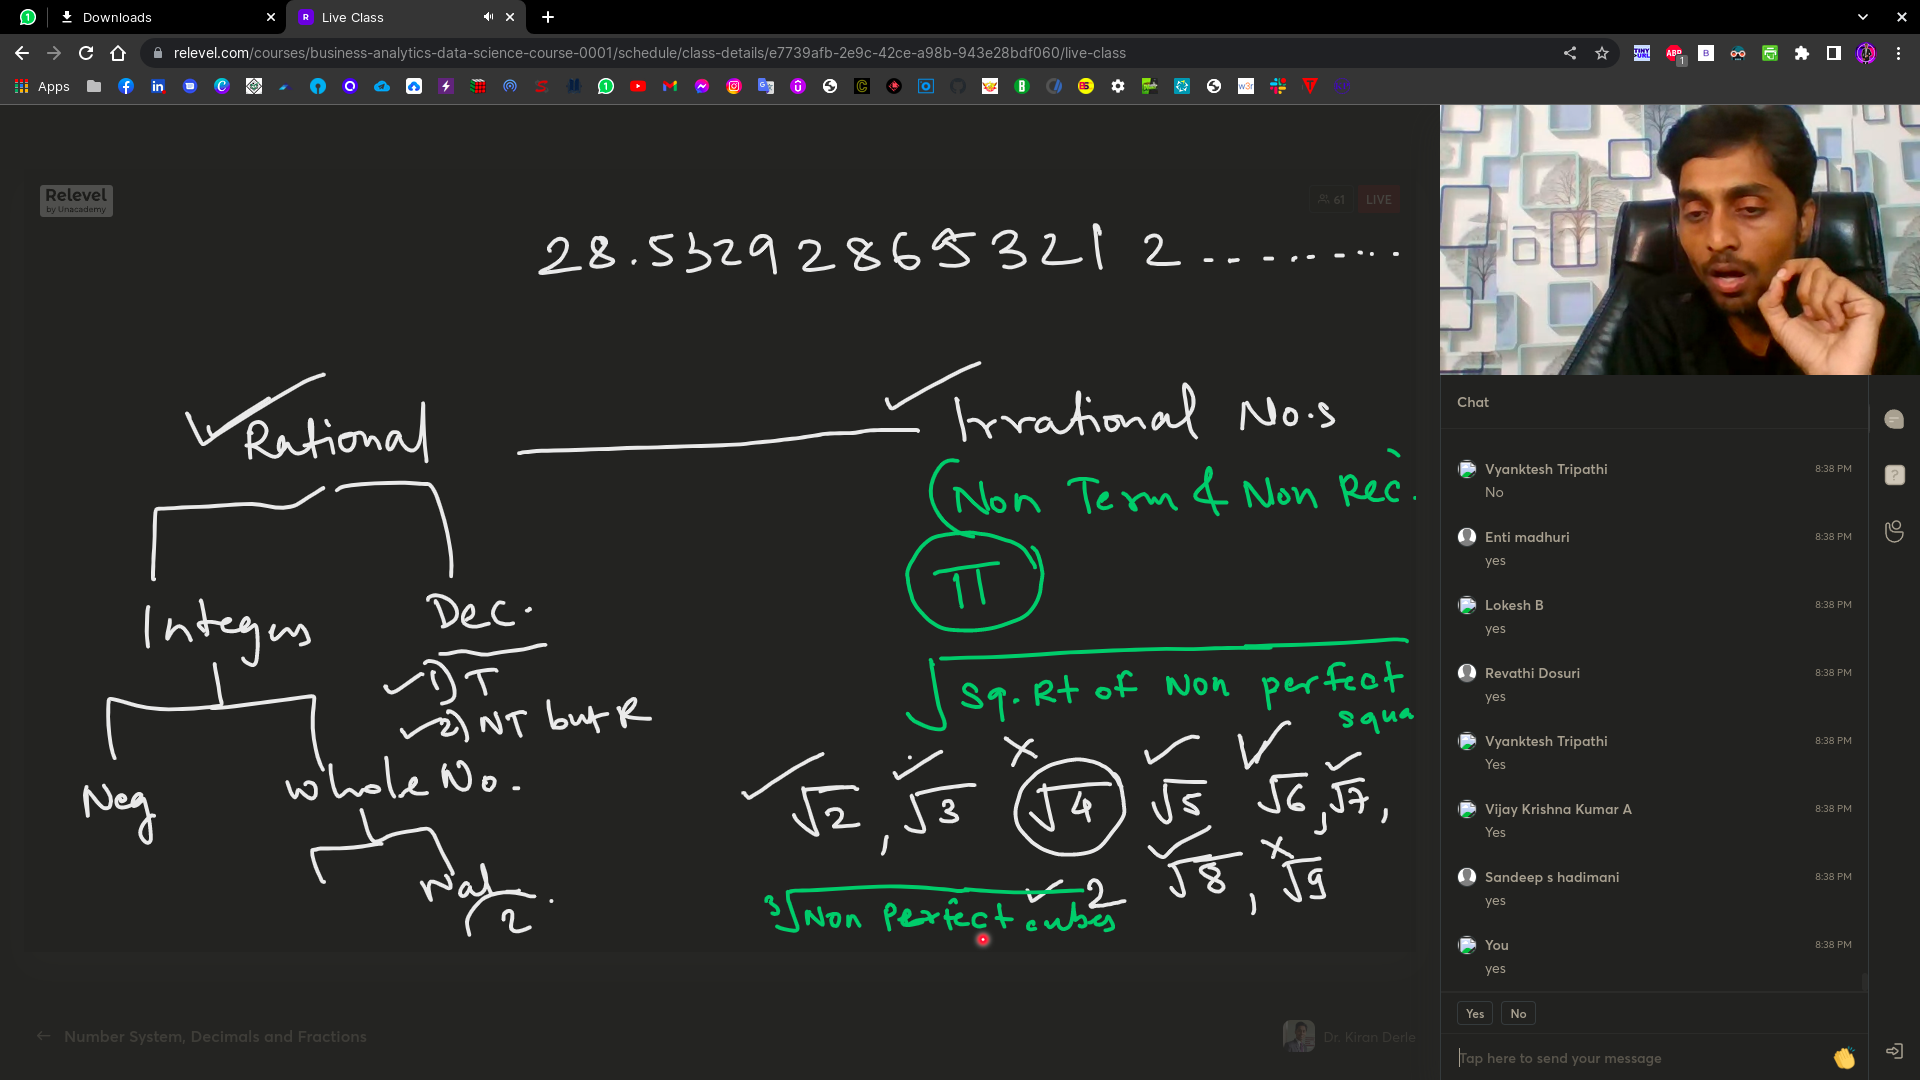 Downloads
Live Class
relevel.com/courses/business-analytics-data-science-course-0001/schedule/class-details/e7739afb-2e9c-42ce-a98b-943e28bdf060/live-class
Apps
Relevel
by Unacademy
61 LIVE
28.532928653212.........
Rational
Irrational No.s
(Non Term & Non Rec.
π
Integers
Dec.
1) T
2) NT but R
√Sq. Rt of Non perfect
squa
Neg
Whole No.
√2, √3 √4 √5 √6, √7,
√8, √9
Nat.
2
2
3√Non Perfect cubes
Number System, Decimals and Fractions
Dr. Kiran Derle
Chat
Vyanktesh Tripathi 8:38 PM
No
Enti madhuri 8:38 PM
yes
Lokesh B 8:38 PM
yes
Revathi Dosuri 8:38 PM
yes
Vyanktesh Tripathi 8:38 PM
Yes
Vijay Krishna Kumar A 8:38 PM
Yes
Sandeep s hadimani 8:38 PM
yes
You 8:38 PM
yes
Yes No
Tap here to send your message